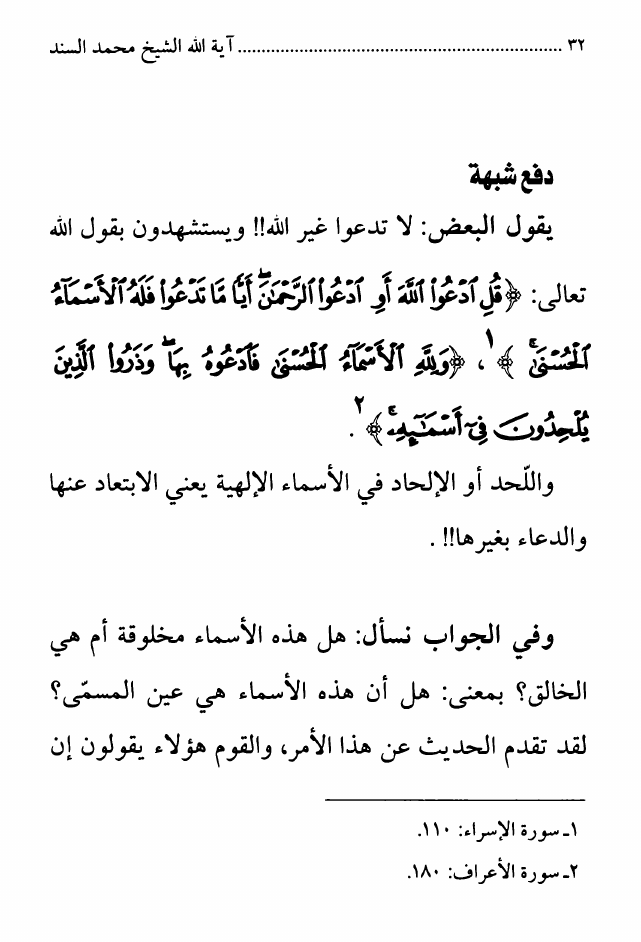 ٣٢ .................................................................... آية الله الشيخ محمد السند
دفع شبهة
يقول البعض: لا تدعوا غير الله!! ويستشهدون بقول الله
تعالى: ﴿قُلِ ٱدْعُوا۟ ٱللَّهَ أَوِ ٱدْعُوا۟ ٱلرَّحْمَـٰنَ ۖ أَيًّا مَّا تَدْعُوا۟ فَلَهُ ٱلْأَسْمَآءُ
ٱلْحُسْنَىٰ ۚ﴾١، ﴿وَلِلَّهِ ٱلْأَسْمَآءُ ٱلْحُسْنَىٰ فَٱدْعُوهُ بِهَا ۖ وَذَرُوا۟ ٱلَّذِينَ
يُلْحِدُونَ فِىٓ أَسْمَـٰٓئِهِۦ ۚ﴾٢.
واللّحد أو الإلحاد في الأسماء الإلهية يعني الابتعاد عنها
والدعاء بغيرها!! .
وفي الجواب نسأل: هل هذه الأسماء مخلوقة أم هي
الخالق؟ بمعنى: هل أن هذه الأسماء هي عين المسمّى؟
لقد تقدم الحديث عن هذا الأمر، والقوم هؤلاء يقولون إن
١ـ سورة الإسراء: ١١٠.
٢ـ سورة الأعراف: ١٨٠.